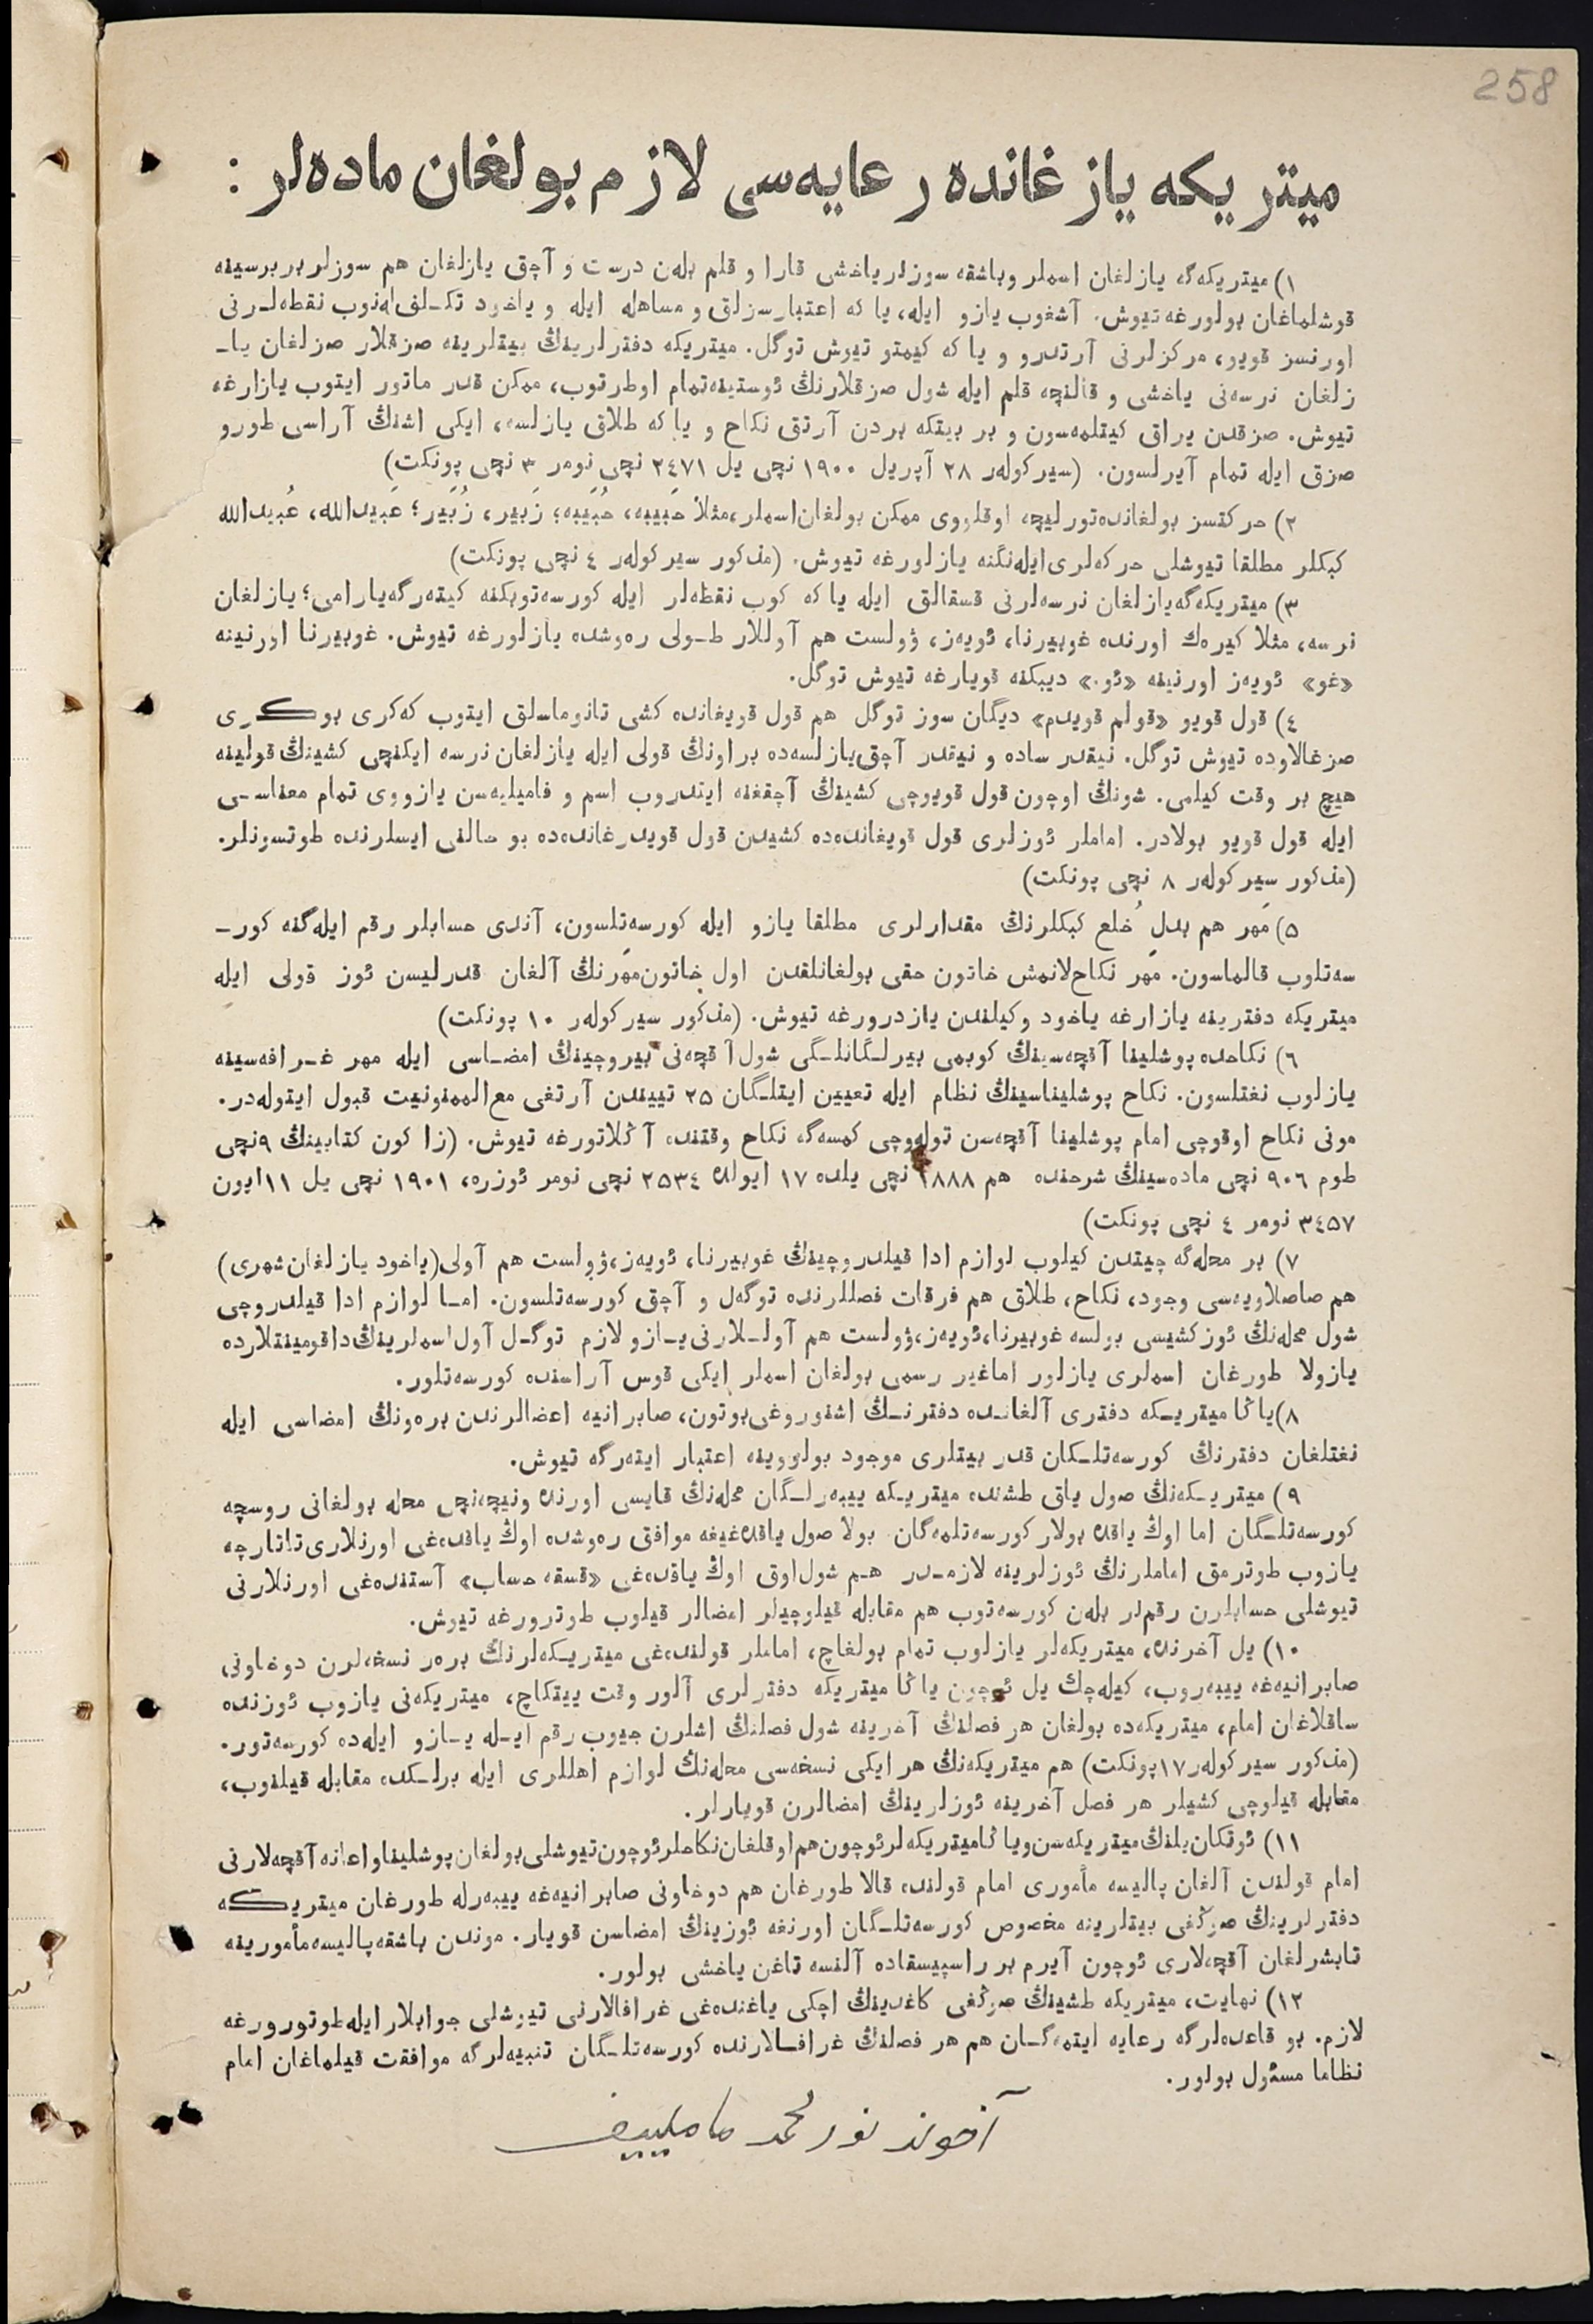 258
ميتريكه يازغانده رعايه‌سى لازم بولغان ماده‌لر :
١) ميتريكه‌گه يازلغان اسملر وباشقه سوزلر ياخشى قارا و قلم بله‌ن درست و آچق يازلغان هم سوزلر بر برسينه
قوشلماغان بولورغه تيوش. آشغوب يازو ايله، يا كه اعتبارسزلق و مساهله ايله و ياخود تكلف‌له‌نوب نقطه‌لرنى
اورنسز قويو، مركزلرنى آرتدرو و يا كه كيمتو تيوش توگل. ميتريكه دفترلرينڭ بيتلرينه صزقلار صزلغان يا-
زلغان نرسه‌نى ياخشى و قالنچه قلم ايله شول صزقلارنڭ ئوستينه تمام اوطرتوب، ممكن قدر ماتور ايتوب يازارغه
تيوش. صزقدن يراق كيتلمه‌سون و بر بيتكه بردن آرتق نكاح و يا كه طلاق يازلسه، ايكى اشنڭ آراسى طورو
صزق ايله تمام آيرلسون. (سيركولەر ٢٨ آپريل ١٩٠٠ نچى يل ٢٤٧١ نچى نومر ٣ نچى پونكت)
٢) حركتسز بولغانده تورليچه اوقلووى ممكن بولغان اسملر، مثلا حَبيبه، حُبَيبه؛ زَبير، زُبَير؛ عَبيدالله، عُبيدالله
كبكلر مطلقا تيوشلى حركه‌لرى ايله‌نگنه يازلورغه تيوش. (مذكور سيركولەر ٤ نچى پونكت)
٣) ميتريكه‌گه يازلغان نرسه‌لرنى قسقالق ايله يا كه كوب نقطه‌لر ايله كورسه‌توبكنه كيته‌رگه يارامى؛ يازلغان
نرسه، مثلا كيره‌ك اورنده غوبيرنا، ئويه‌ز، ۋولست هم آوللار طولى ره‌وشده يازلورغه تيوش. غوبيرنا اورنينه
«غو» ئويه‌ز اورنينه «ئو.» ديبكنه قويارغه تيوش توگل.
٤) قول قويو «قولم قويدم» ديگان سوز توگل هم قول قويغانده كشى تانوماسلق ايتوب كه‌كرى بوكرى
صزغالاوده تيوش توگل. نيقدر ساده و نيقدر آچق يازلسه‌ده براونڭ قولى ايله يازلغان نرسه ايكنچى كشينڭ قولينه
هيچ بر وقت كيلمى. شونڭ اوچون قول قويوچى كشينڭ آچقغنه ايتدروب اسم و فاميليه‌سن يازووى تمام معناسى
ايله قول قويو بولادر. اماملر ئوزلرى قول قويغانده‌ده كشيدن قول قويدرغانده‌ده بو حالنى ايسلرنده طوتسونلر.
(مذكور سيركولەر ٨ نچى پونكت)
٥) مَهر هم بدلِ خُلع كبكلرنڭ مقدارلرى مطلقا يازو ايله كورسه‌تلسون، آندى حسابلر رقم ايله‌گنه كور-
سه‌تلوب قالماسون. مَهر نكاح‌لانمش خاتون حقى بولغانلقدن اول خاتون مَهرنڭ آلغان قدرليسن ئوز قولى ايله
ميتريكه دفترينه يازارغه ياخود وكيلندن يازدرورغه تيوش. (مذكور سيركولەر ١٠ پونكت)
٦) نكاحده پوشلينا آقچه‌سينڭ كوبمى بيرلگانلگى شول آقچه‌نى بيروچينڭ امضاسى ايله مهر غرافه‌سينه
يازلوب نغتلسون. نكاح پوشليناسينڭ نظام ايله تعيين ايتلگان ٢٥ تييندن آرتغى مع‌الممنونيت قبول ايتوله‌در.
مونى نكاح اوقوچى امام پوشلينا آقچه‌سن توله‌وچى كمسه‌گه نكاح وقتنده آڭلاتورغه تيوش. (زاكون كتابينڭ ٩نچى
طوم ٩٠٦ نچى ماده‌سينڭ شرحنده هم ١٨٨٨ نچى يلده ١٧ ايولده ٢٥٣٤ نچى نومر ئوزره، ١٩٠١ نچى يل ١١ ايون
٣٤٥٧ نومر ٤ نچى پونكت)
٧) بر محله‌گه چيتدن كيلوب لوازم ادا قيلدروچينڭ غوبيرنا، ئويه‌ز، ۋولست هم آولى (ياخود يازلغان شهرى)
هم صاصلاويه‌سى وجود، نكاح، طلاق هم فرقات فصللرنده توگه‌ل و آچق كورسه‌تلسون. اما لوازم ادا قيلدروچى
شول محله‌نڭ ئوز كشيسى بولسه غوبيرنا، ئويه‌ز، ۋولست هم آوللارنى يازو لازم توگل آول اسملرينڭ داقومينتلارده
يازولا طورغان اسملرى يازلور اما غير رسمى بولغان اسملر ايكى قوس آراسنده كورسه‌تلور.
٨) ياڭا ميتريكه دفترى آلغانده دفترنڭ اشنوروغى بوتون، صابرانيه اعضالرندن بره‌ونڭ امضاسى ايله
نغتلغان دفترنڭ كورسه‌تلكان قدر بيتلرى موجود بولووينه اعتبار ايته‌رگه تيوش.
٩) ميتريكه‌نڭ صول ياق طشنده ميتريكه ييبه‌رلگان محله‌نڭ قايسى اورنده ونيچه‌نچى محله بولغانى روسچه
كورسه‌تلگان اما اوڭ ياقده بولار كورسه‌تلمه‌گان. بولا صول ياقده‌غيغه موافق ره‌وشده اوڭ ياقده‌غى اورنلارى تاتارچه
يازوب طوترمق اماملرنڭ ئوزلرينه لازمدر هم شول‌اوق اوڭ ياقده‌غى «قسقه حساب» آستنده‌غى اورنلارنى
تيوشلى حسابلرن رقم‌لر بله‌ن كورسه‌توب هم مقابله قيلوچيلر امضالر قيلوب طوترورغه تيوش.
١٠) يل آخرنده، ميتريكه‌لر يازلوب تمام بولغاچ، اماملر قولنده‌غى ميتريكه‌لرنڭ بره‌ر نسخه‌لرن دوخاونى
صابرانيه‌غه ييبه‌روب، كيله‌چك يل ئوچون ياڭا ميتريكه دفترلرى آلور وقت ييتكاچ، ميتريكه‌نى يازوب ئوزنده
ساقلاغان امام، ميتريكه‌ده بولغان هر فصلنڭ آخرينه شول فصلنڭ اشلرن جيوب رقم ايله يازو ايله‌ده كورسه‌تور.
(مذكور سيركولەر ١٧ پونكت) هم ميتريكه‌نڭ هر ايكى نسخه‌سى محله‌نڭ لوازم اهللرى ايله برلكده مقابله قيلنوب،
مقابله قيلوچى كشيلر هر فصل آخرينه ئوزلرينڭ امضالرن قويارلر.
١١) ئوتكان يلنڭ ميتريكه‌سن و ياڭا ميتريكه‌لر ئوچون هم اوقلغان نكاحلر ئوچون تيوشلى بولغان پوشلينا و اعانه آقچه‌لارنى
امام قولندن آلغان پاليسه مأمورى امام قولنده قالا طورغان هم دوخاونى صابرانيه‌غه ييبه‌رله طورغان ميتريكه
دفترلرينڭ صوڭغى بيتلرينه مخصوص كورسه‌تلگان اورنغه ئوزينڭ امضاسن قويار. موندن باشقه پاليسه مأمورينه
تابشرلغان آقچه‌لارى ئوچون آيرم بر راسپيسقاده آلنسه تاغن ياخشى بولور.
١٢) نهايت، ميتريكه طشينڭ صوڭغى كاغدينڭ اچكى ياغنده‌غى غرافالارنى تيوشلى جوابلار ايله طوتورورغه
لازم. بو قاعده‌لرگه رعايه ايتمه‌گان هم هر فصلنڭ غرافالارنده كورسه‌تلگان تنبيه‌لرگه موافقت قيلماغان امام
نظاما مسئول بولور.
آخوند نورمحمد ماملييف